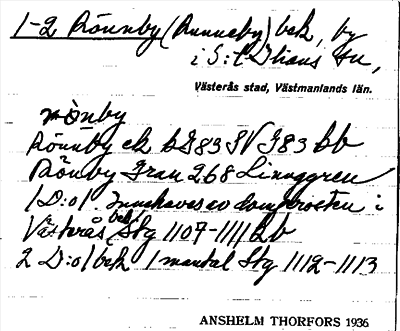 1-2 Rönnby (Runneby) bek, by
i S:t Ilians sn,
Västerås stad, Västmanlands län.
rònby
Rönnby ek bG83 SV G83 bb
Rönnby Gran 268 Linnggren
1 D:o1. Innehaves av domprosten i
Västerås bek. Stg 1107-1111 bb
2 D:o1 bek 1 mantal Stg 1112-1113
ANSHELM THORFORS 1936